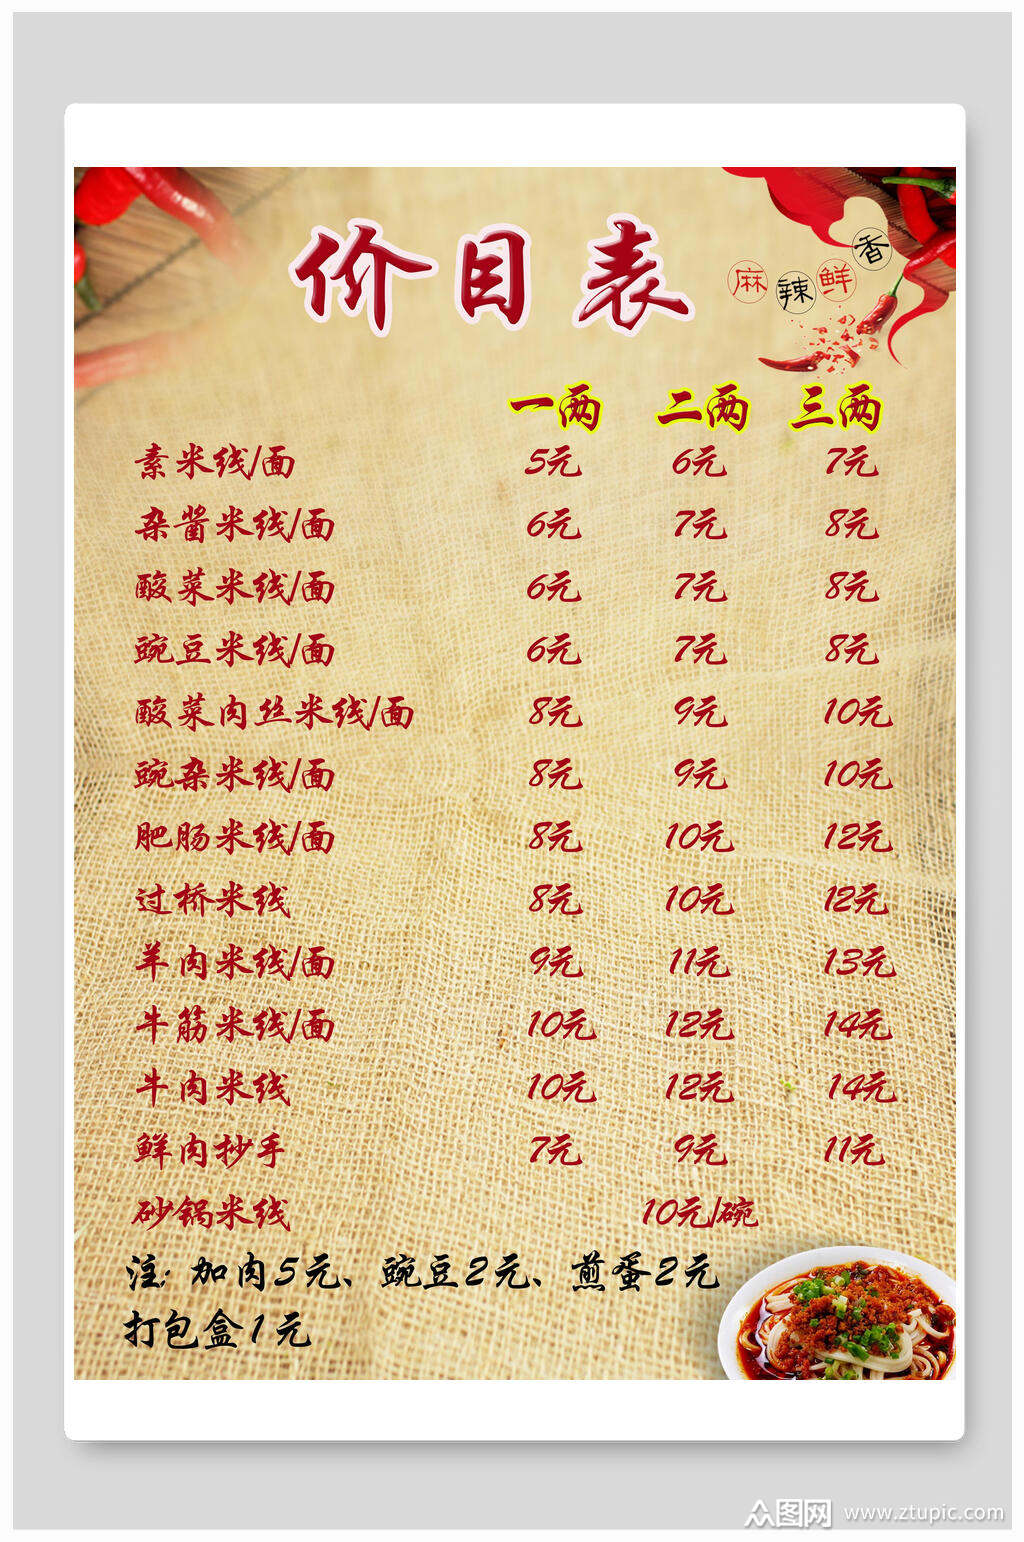 价目表
麻辣鲜香
一两 二两 三两
素米线/面 5元 6元 7元
杂酱米线/面 6元 7元 8元
酸菜米线/面 6元 7元 8元
豌豆米线/面 6元 7元 8元
酸菜肉丝米线/面 8元 9元 10元
豌杂米线/面 8元 9元 10元
肥肠米线/面 8元 10元 12元
过桥米线 8元 10元 12元
羊肉米线/面 9元 11元 13元
牛筋米线/面 10元 12元 14元
牛肉米线 10元 12元 14元
鲜肉抄手 7元 9元 11元
砂锅米线 10元/碗
注: 加肉5元、豌豆2元、煎蛋2元
打包盒1元
众图网 www.ztupic.com